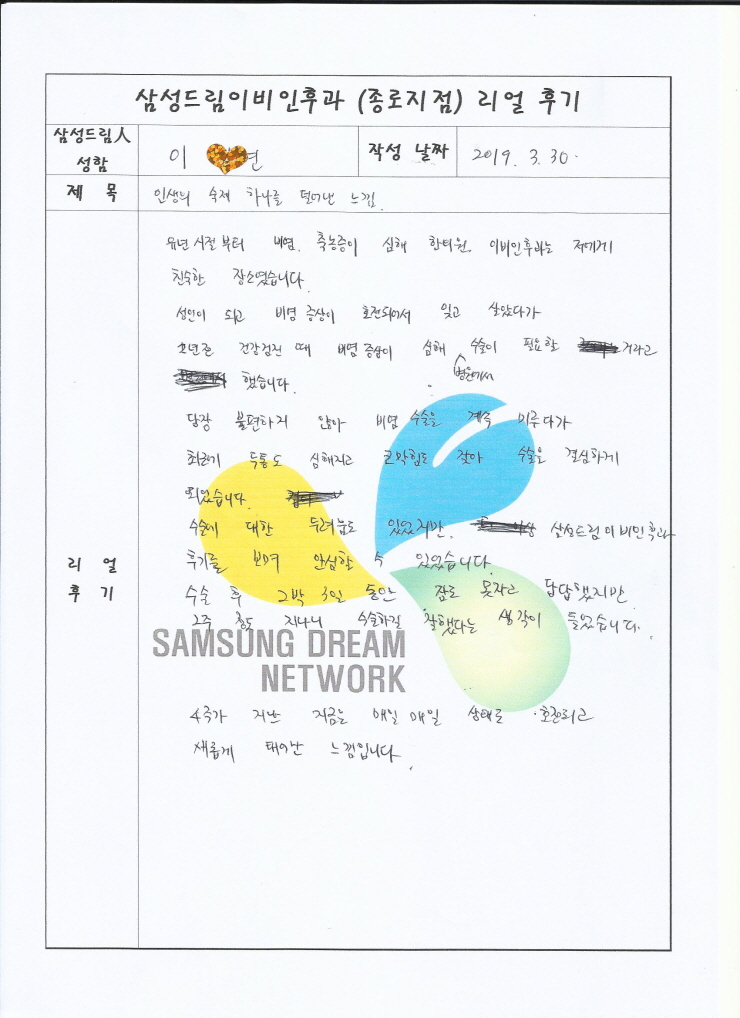 삼성드림이비인후과 (종로지점) 리얼 후기
삼성드림人 성함
이 연
작성 날짜
2019. 3. 30.
제 목
인생의 숙제 하나를 덜어낸 느낌.
리 얼 후 기
유년 시절부터 비염, 축농증이 심해 한의원, 이비인후과는 저에게
친숙한 장소였습니다.
성인이 되고 비염 증상이 호전되어서 잊고 살았다가
2년전 건강검진 때 비염 증상이 심해 수술이 필요할 거라고
병원에서
했습니다.
당장 불편하지 않아 비염 수술을 계속 미루다가
최근에 두통도 심해지고 코막힘도 잦아 수술을 결심하게
되었습니다.
수술에 대한 두려움도 있었지만, 삼성드림이비인후과
후기를 보며 안심할 수 있었습니다.
수술 후 2박 3일 동안 잠도 못자고 답답했지만
2주 정도 지나니 수술하길 잘했다는 생각이 들었습니다.
SAMSUNG DREAM
NETWORK
4주가 지난 지금은 매일 매일 상태도 호전되고
새롭게 태어난 느낌입니다.